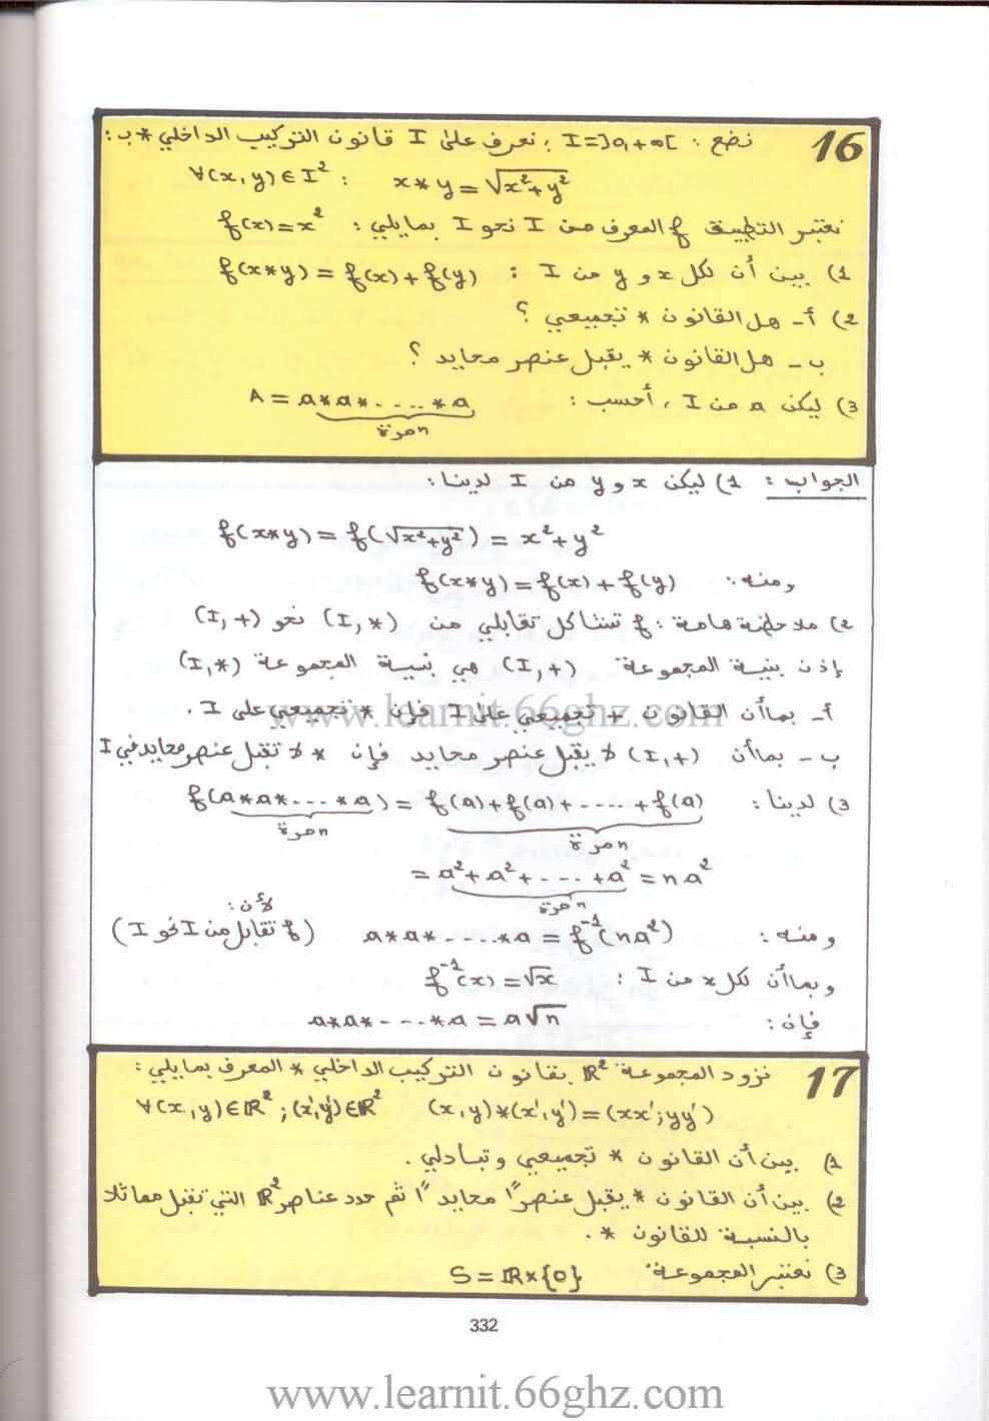 16 نضع : I=]0,+∞[ ; نعرف على I قانون التركيب الداخلي * ب :
∀(x,y)∈I² : x*y=√(x²+y²)
نعتبر التطبيق f المعرف من I نحو I بمايلي : f(x)=x²
1) بين أن لكل x و y من I : f(x*y)=f(x)+f(y)
2) أ- هل القانون * تجميعي ؟
ب - هل القانون * يقبل عنصر محايد ؟
3) ليكن a من I ، أحسب : A = a*a*.....*a
n مرة
الجواب : 1) ليكن x و y من I لدينا :
f(x*y)=f(√(x²+y²))=x²+y²
ومنه : f(x*y)=f(x)+f(y)
2) ملاحظة هامة : f تشاكل تقابلي من (I,*) نحو (I,+)
إذن بنية المجموعة (I,+) هي بنية المجموعة (I,*)
أ- بماأن القانون + تجميعي على I فإن * تجميعي على I .
ب - بماأن (I,+) لا يقبل عنصر محايد فإن * لا تقبل عنصر محايد في I
3) لدينا : f(a*a*...*a) = f(a)+f(a)+....+f(a)
n مرة n مرة
= a²+a²+....+a² = na²
n مرة
ومنه : a*a*.....*a = f⁻¹(na²) (لأن : f تقابل من I نحو I)
وبماأن لكل x من I : f⁻¹(x)=√x
فإن : a*a*....*a = a√n
17 نزود المجموعة ℝ² بقانون التركيب الداخلي * المعرف بمايلي :
∀(x,y)∈ℝ² ; (x',y')∈ℝ² (x,y)*(x',y')=(xx';yy')
1) بين أن القانون * تجميعي وتبادلي .
2) بين أن القانون * يقبل عنصرًا محايدًا ثم حدد عناصر ℝ² التي تقبل مماثلا
بالنسبة للقانون * .
3) نعتبر المجموعة S = ℝ×{0}
332
www.learnit.66ghz.com
www.learnit.66ghz.com